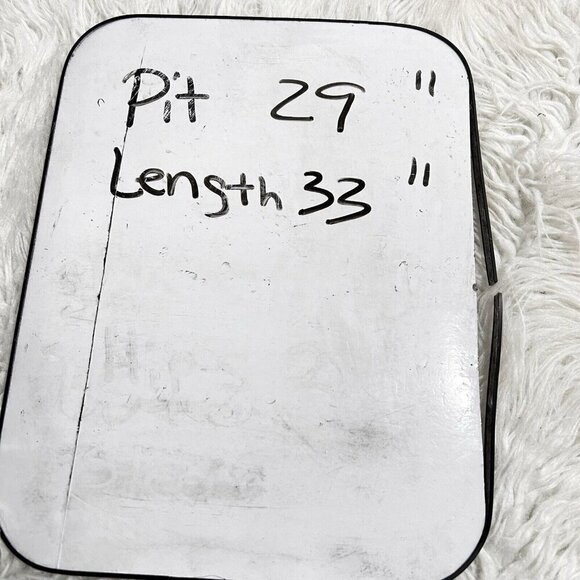 Pit 29 "
Length 33 "